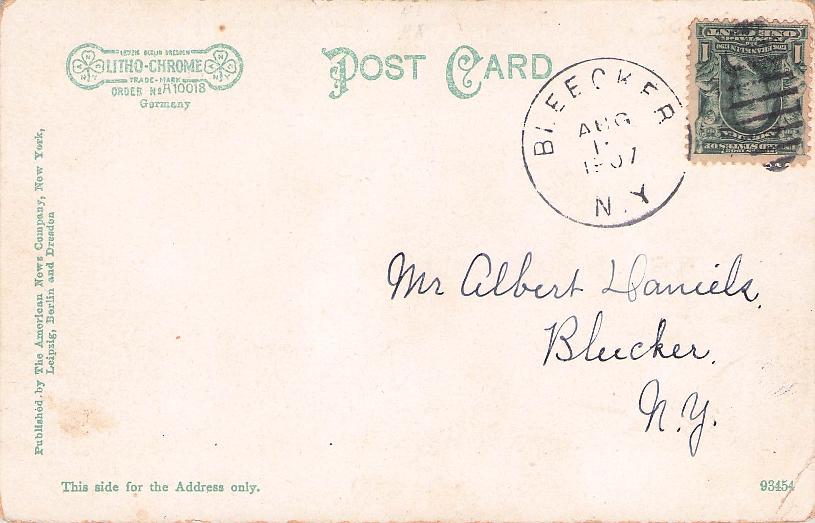 LEIPZIG BERLIN DRESDEN
LITHO-CHROME
TRADE-MARK
ORDER No A10018
Germany
POST CARD
BLEECKER
AUG
1907
N.Y
1 ONE CENT 1
FRANKLIN
Mr Albert Daniels,
Bleecker,
N.Y.
Published by The American News Company, New York,
Leipzig, Berlin and Dresden
This side for the Address only.
93454